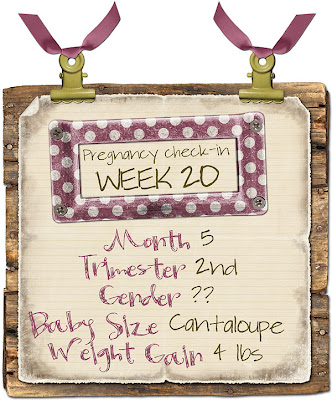 Pregnancy check-in
WEEK 20
Month 5
Trimester 2nd
Gender ??
Baby Size Cantaloupe
Weight Gain 4 lbs